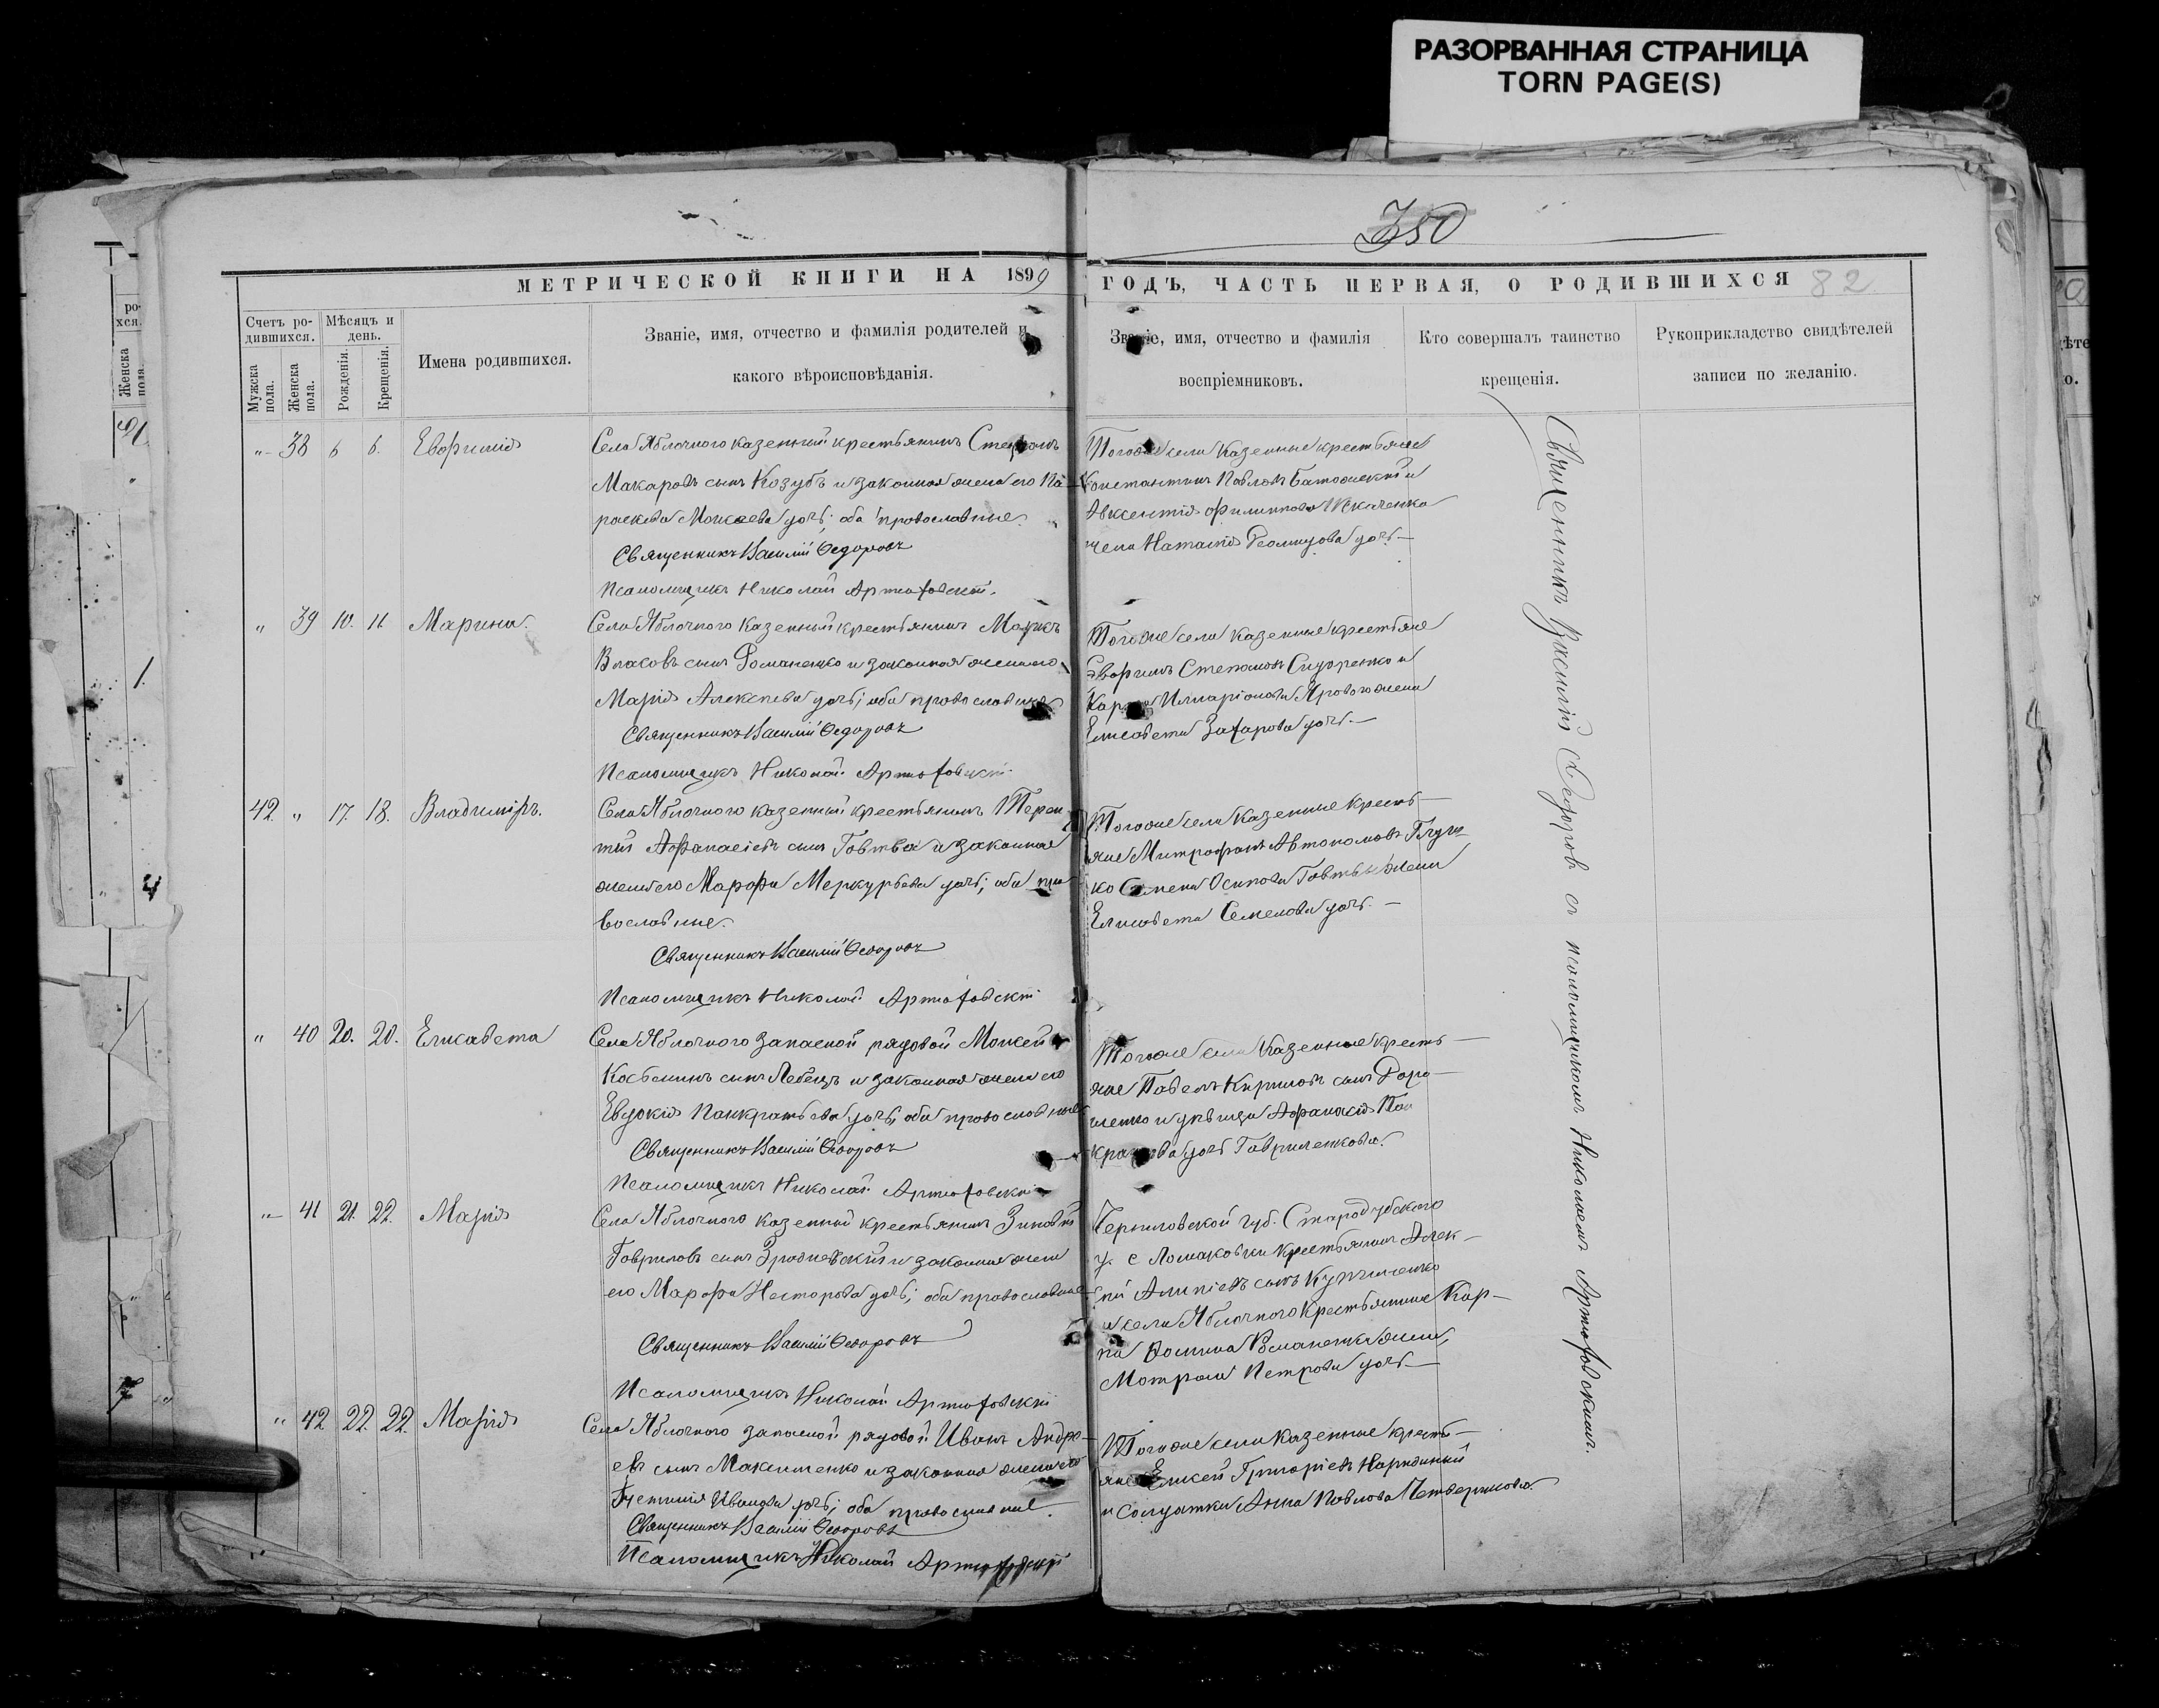 РАЗОРВАННАЯ СТРАНИЦА
TORN PAGE(S)
350
МЕТРИЧЕСКОЙ КНИГИ НА 1899 ГОДЪ, ЧАСТЬ ПЕРВАЯ, О РОДИВШИХСЯ 82
Счетъ ро-
дившихся.
Мужска пола.
Женска пола.
Мѣсяцъ и
день.
Рожденія.
Крещенія.
Имена родившихся.
Званіе, имя, отчество и фамилія родителей и
какого вѣроисповѣданія.
Званіе, имя, отчество и фамилія
воспріемниковъ.
Кто совершалъ таинство
крещенія.
Рукоприкладство свидѣтелей
записи по желанію.
"- 38 6 6. Евфимія
Села Яблочного казенный крестьянинъ Стефанъ
Макаровъ сынъ Козубъ и законная жена его Па-
раскева Моисеева дочь; оба православные.
Священникъ Василій Ѳедоровъ
Псаломщикъ Николай Артюховскій.
Тогоже села казенные крестьяне
Константинъ Павловъ и
жена Наталія дочь.—
" 39 10. 11. Марина.
Села Яблочного казенный крестьянинъ Маркъ
Власовъ сынъ Романенко и законная жена его
Марія Алексѣева дочь; оба православные
Священникъ Василій Ѳедоровъ
Псаломщикъ Николай Артюховскій.
Тогоже села казенные крестьяне
Степановъ Сидоренко и
Карпа Илларіонова Ярового жена
Елисавета Захарова дочь.—
42. " 17. 18. Владиміръ.
Села Яблочного казенный крестьянинъ Терен-
тій Афанасіевъ сынъ Говтва и законная
жена его Марфа Меркурьева дочь; оба пра-
вославные.
Священникъ Василій Ѳедоровъ
Псаломщикъ Николай Артюховскій
Тогоже села казенные кресть—
яне Митрофанъ Автономовъ
ко Семена Осипова Говтвы жена
Елисавета Семенова дочь.—
" 40 20. 20. Елисавета
Села Яблочного запасной рядовой Моисей
сынъ и законная жена его
Евдокія Панкратьева дочь; оба православные
Священникъ Василій Ѳедоровъ
Псаломщикъ Николай Артюховскій
Тогоже села казенные кресть—
яне Павелъ Кириловъ сынъ Доро—
шенко и дѣвица Афанасія Пан
кратова дочь Гавриленкова.
"- 41 21. 22. Марія
Села Яблочного казенный крестьянинъ Зиновій
Гавриловъ сынъ и законная жена
его Марфа Несторова дочь; оба православные
Священникъ Василій Ѳедоровъ
Псаломщикъ Николай Артюховскій
Черниговской губ. Стародубского
у. с. Ломаковки крестьянинъ Алек—
сѣй сынъ
и села Яблочного крестьянина Кар—
па Ѳомина Романенка жена,
Мотрона Петрова дочь—
" 42 22. 22. Марія
Села Яблочного запасной рядовой Иванъ Андре—
евъ сынъ Максименко и законная жена его
Іустинія Иванова дочь; оба православные.
Священникъ Василій Ѳедоровъ
Псаломщикъ Николай Артюховскій
Тогоже села казенные кресть—
яне Елисей Григоріевъ
и солдатка Анна Павлова Четверикова.
Священникъ Василій Ѳедоровъ съ псаломщикомъ Николаемъ Артюховскимъ.